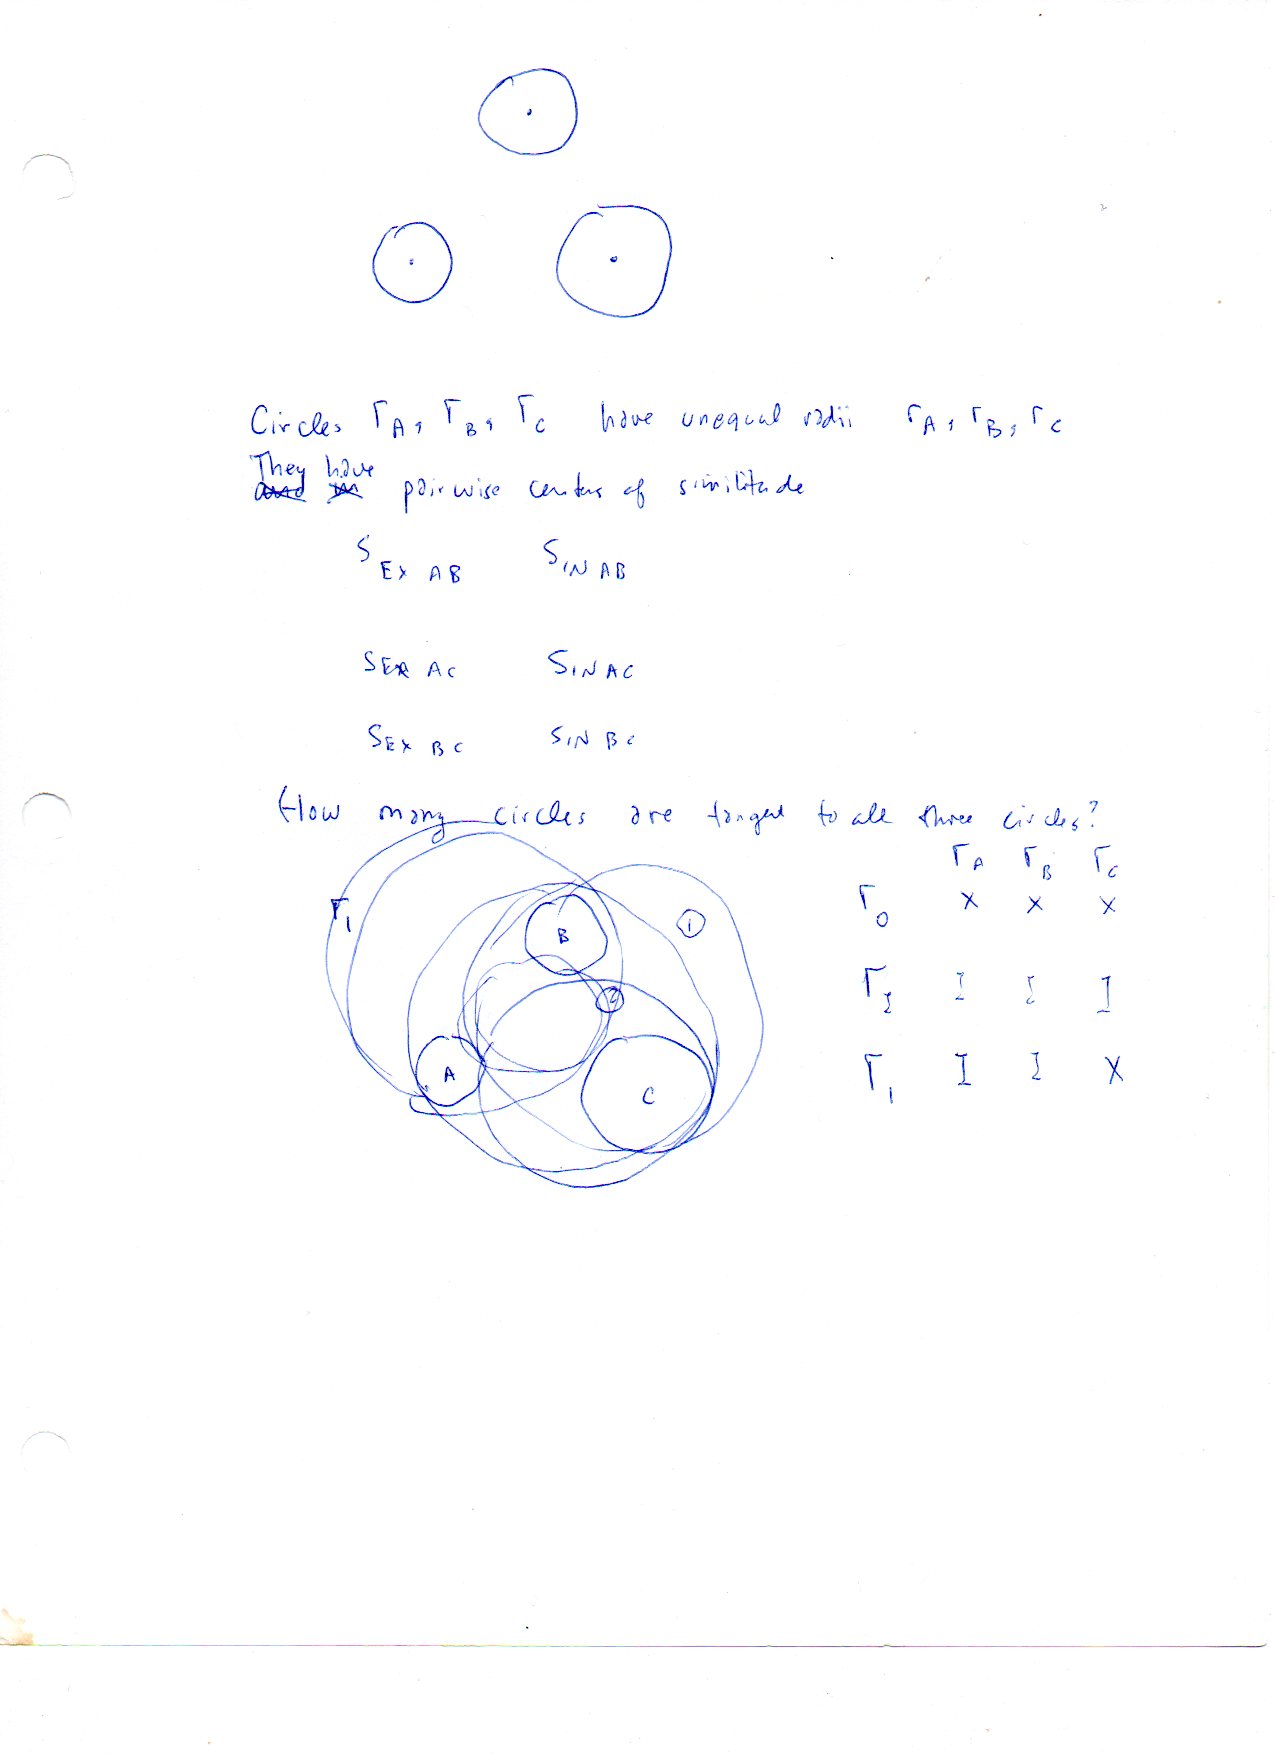 Circles Γ_A, Γ_B, Γ_C have unequal radii r_A, r_B, r_C
They have
and in pairwise centers of similitude
S_EX AB S_IN AB
S_EX AC S_IN AC
S_EX BC S_IN BC
How many circles are tangent to all three circles?
Γ_A Γ_B Γ_C
Γ_0 X X X
Γ_I I I I
Γ_1 I I X
Γ_1
B
1
2
A
C